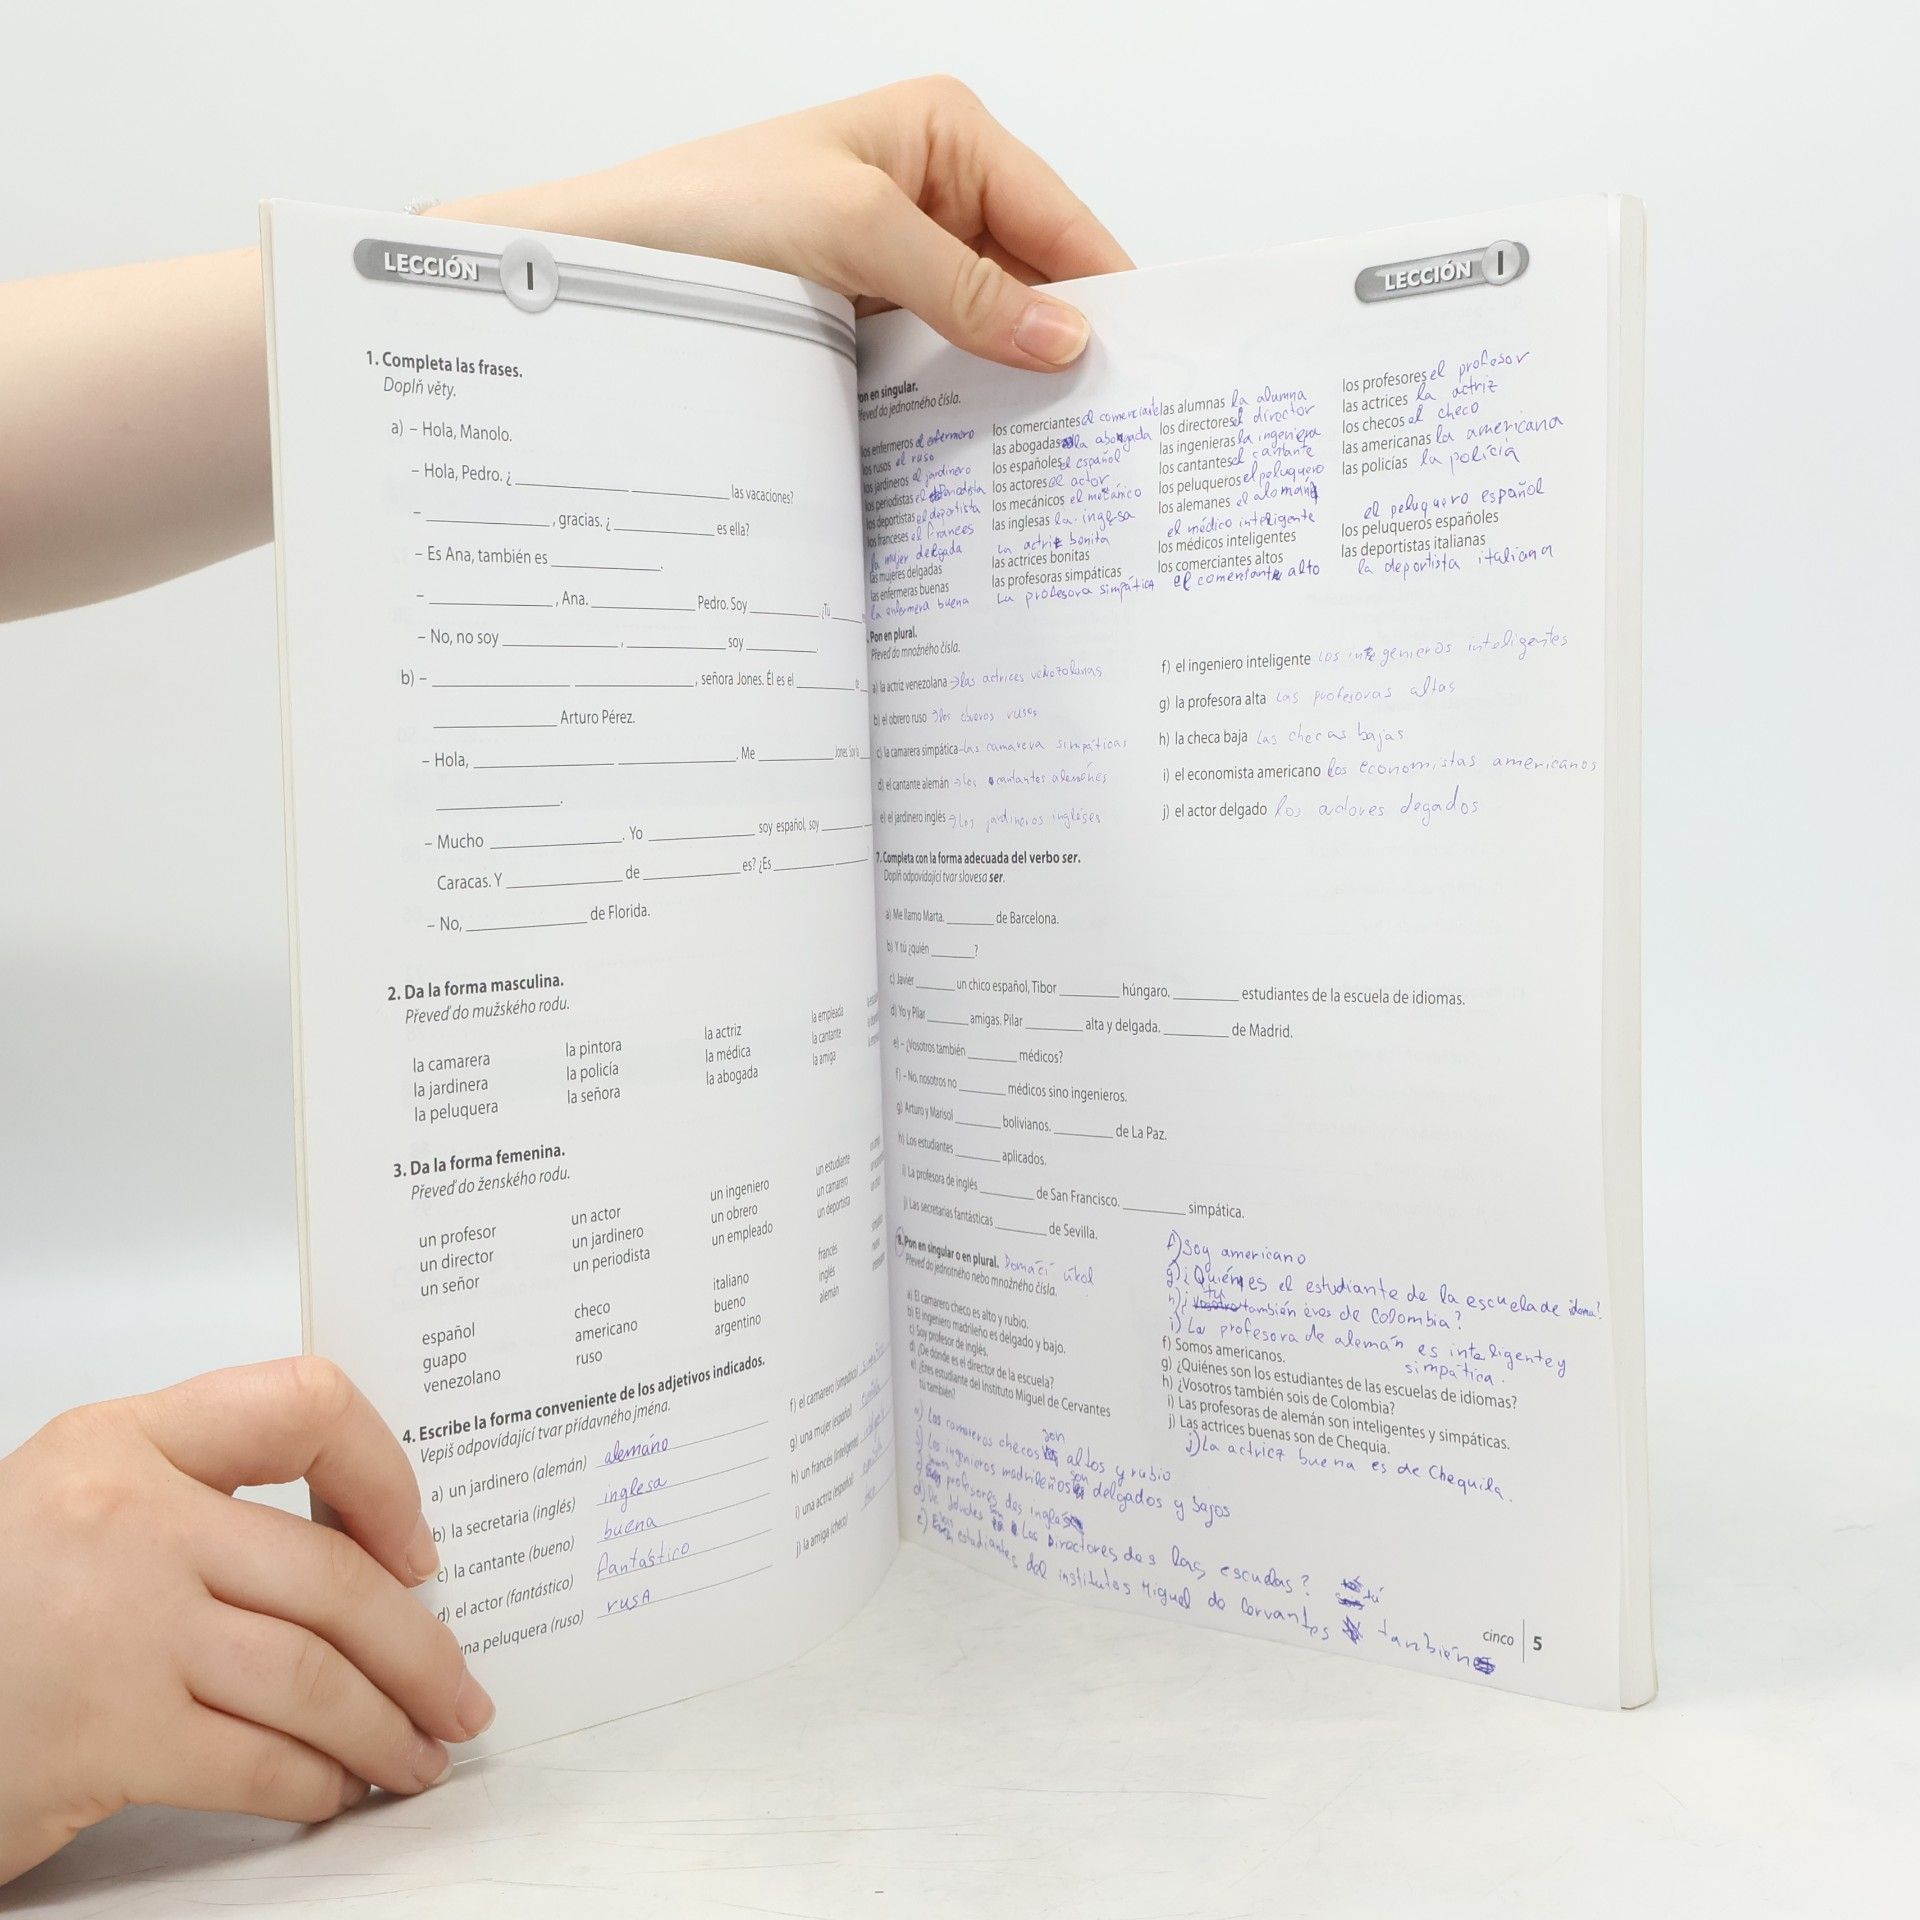 LECCIÓN I
1. Completa las frases.
Doplň věty.
a) – Hola, Manolo.
– Hola, Pedro. ¿ las vacaciones?
– , gracias. ¿ es ella?
– Es Ana, también es .
– , Ana. Pedro. Soy . ¿Tú
– No, no soy , soy .
b) – , señora Jones. Él es el de
Arturo Pérez.
– Hola, . Me Jones. Soy la
.
– Mucho . Yo soy español, soy
Caracas. Y de es? ¿Es
– No, de Florida.
2. Da la forma masculina.
Převeď do mužského rodu.
la camarera la pintora la actriz la empleada
la jardinera la policía la médica la cantante
la peluquera la señora la abogada la amiga
3. Da la forma femenina.
Převeď do ženského rodu.
un profesor un actor un ingeniero un estudiante
un director un jardinero un obrero un camarero
un señor un periodista un empleado un deportista
español checo italiano francés
guapo americano bueno inglés
venezolano ruso argentino alemán
4. Escribe la forma conveniente de los adjetivos indicados.
Vepiš odpovídající tvar přídavného jména.
a) un jardinero (alemán) alemáno f) el camarero (simpático)
b) la secretaria (inglés) inglesa g) una mujer (español)
c) la cantante (bueno) buena h) un francés (inteligente)
d) el actor (fantástico) fantástico i) una actriz (español)
na peluquera (ruso) rusa j) la amiga (checo)
LECCIÓN I
Pon en singular.
Převeď do jednotného čísla.
los enfermeros el enfermero los comerciantes el comerciante las alumnas la alumna los profesores el profesor
los rusos el ruso las abogadas la abogada los directores el director las actrices la actriz
los jardineros el jardinero los españoles el español las ingenieras la ingeniera los checos el checo
los periodistas el periodista los actores el actor los cantantes el cantante las americanas la americana
los deportistas el deportista los mecánicos el mecánico los peluqueros el peluquero las policías la policía
los franceses el frances las inglesas la inglesa los alemanes el alemán
la mujer delgada la actriz bonita el médico inteligente el peluquero español
las mujeres delgadas las actrices bonitas los médicos inteligentes los peluqueros españoles
las enfermeras buenas las profesoras simpáticas los comerciantes altos las deportistas italianas
la enfermera buena la profesora simpática el comerciante alto la deportista italiana
Pon en plural.
Převeď do množného čísla.
a) la actriz venezolana → las actrices venezolanas
b) el obrero ruso → los obreros rusos
c) la camarera simpática – las camarera simpáticas
d) el cantante alemán → los cantantes alemánes
e) el jardinero inglés → los jardineros ingléses
f) el ingeniero inteligente los ingenieros inteligentes
g) la profesora alta las profesoras altas
h) la checa baja las checas bajas
i) el economista americano los economistas americanos
j) el actor delgado los actores degados
7. Completa con la forma adecuada del verbo ser.
Doplň odpovídající tvar slovesa ser.
a) Me llamo Marta. de Barcelona.
b) Y tú ¿quién ?
c) Javier un chico español, Tibor húngaro. estudiantes de la escuela de idiomas.
d) Yo y Pilar amigas. Pilar alta y delgada. de Madrid.
e) – ¿Vosotros también médicos?
f) – No, nosotros no médicos sino ingenieros.
g) Arturo y Marisol bolivianos. de La Paz.
h) Los estudiantes aplicados.
i) La profesora de inglés de San Francisco. simpática.
j) Las secretarias fantásticas de Sevilla.
8. Pon en singular o en plural. Domácí úkol
Převeď do jednotného nebo množného čísla.
a) El camarero checo es alto y rubio.
b) El ingeniero madrileño es delgado y bajo.
c) Soy profesor de inglés.
d) ¿De dónde es el director de la escuela?
e) ¿Eres estudiante del Instituto Miguel de Cervantes
tú también?
f) Soy americano
g) ¿Quién es el estudiante de la escuela de idoma?
h) ¿ tu también eres de Colombia?
i) La profesora de alemán es inteligente y
simpática.
f) Somos americanos.
g) ¿Quiénes son los estudiantes de las escuelas de idiomas?
h) ¿Vosotros también sois de Colombia?
i) Las profesoras de alemán son inteligentes y simpáticas.
j) Las actrices buenas son de Chequia.
j) La actricz buena es de Chequila.
a) Los camareros checos son altos y rubio
Los ingenieros madrileños son delgados y bajos
profesores des inglés
d) De dondes son Los Directores des las escuelas?
e) estudiantes del institutos Miguel de Cervantes tú también
cinco 5